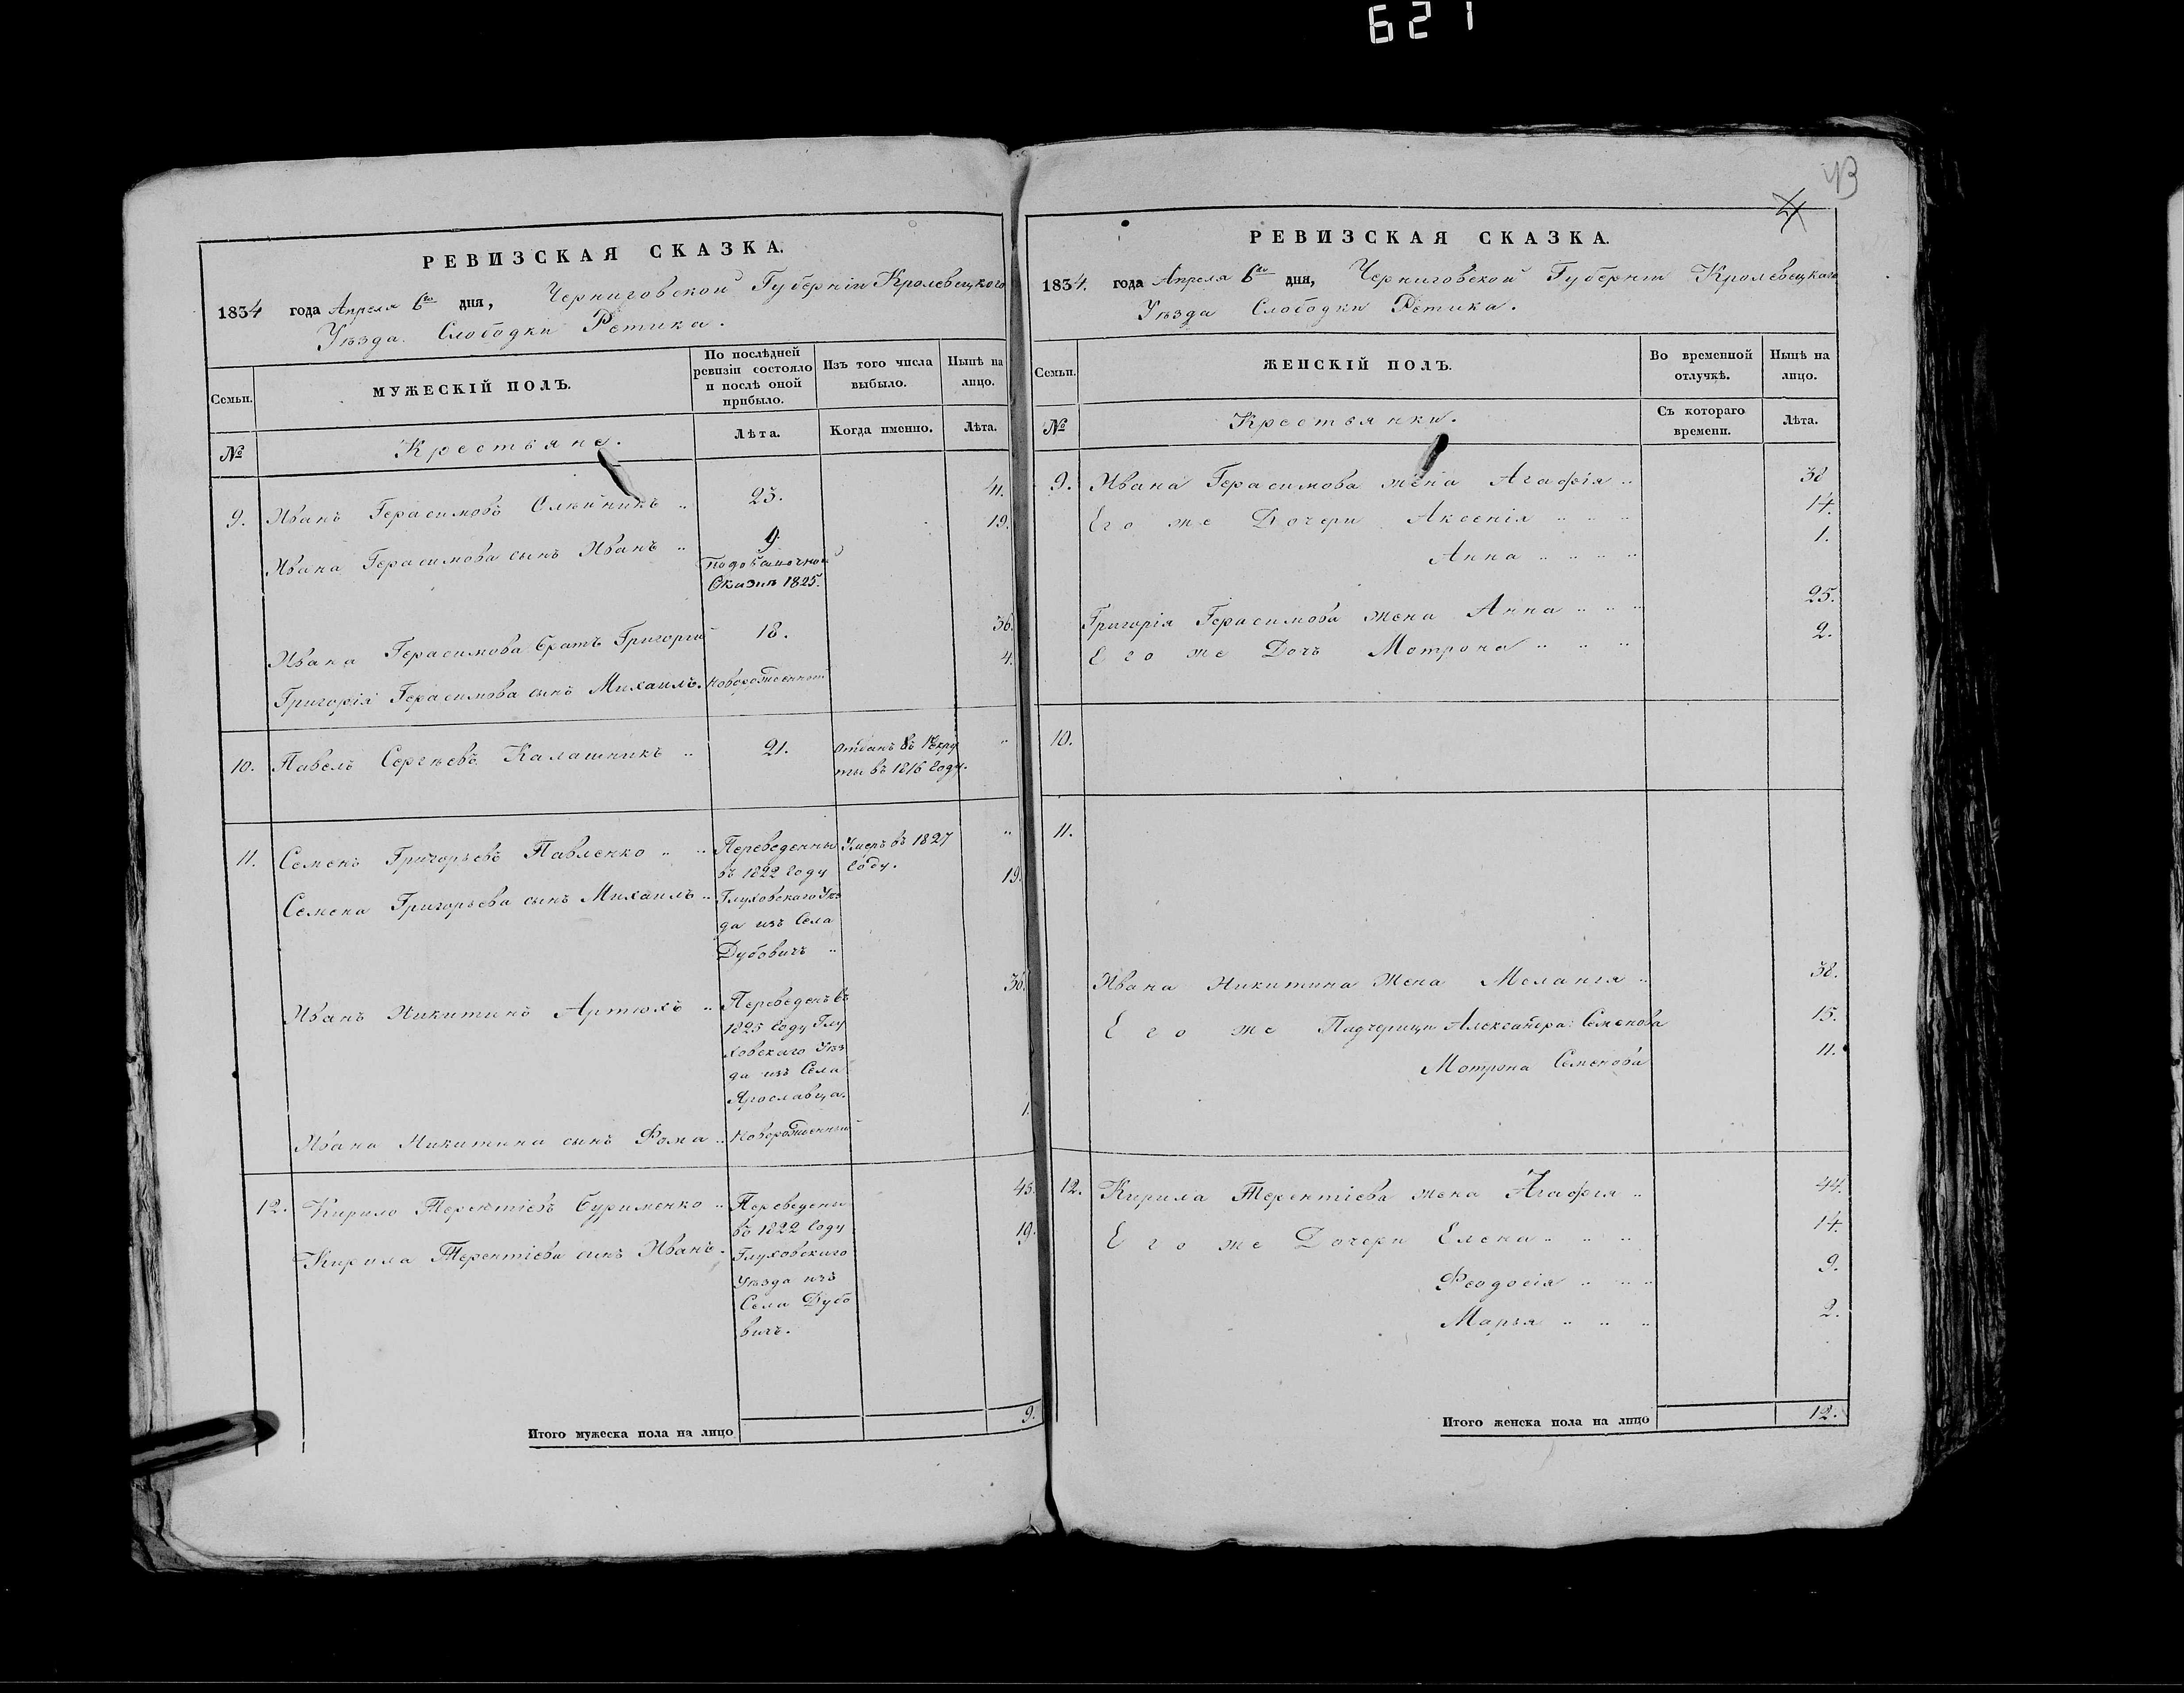 621
43
4
РЕВИЗСКАЯ СКАЗКА.
1834 года Апреля 6го дня, Черниговской Губерніи Кролевецкого
Уѣзда Слободки Ретика.
Семьи.
МУЖЕСКІЙ ПОЛЪ.
По послѣдней
ревизіи состояло
и послѣ оной
прибыло.
Изъ того числа
выбыло.
Нынѣ на
лицо.
№
Крестьяне.
Лѣта.
Когда именно.
Лѣта.
9. Иванъ Герасимовъ Олѣйникъ „ 23. 41.
Ивана Герасимова сынъ Иванъ „ 9. 19.
Сказки 1825.
Ивана Герасимова братъ Григорій 18. 36.
Григорія Герасимова сынъ Михаилъ. Новорожденный 4.
10. Павелъ Сергѣевъ Калашникъ „ 21. отданъ въ Рекру „
ты въ 1816 году.
11. Семенъ Григорьевъ Павленко „ „ Переведены Умеръ въ 1827 „
въ 1822 году году.
Семена Григорьева сынъ Михаилъ „ Глуховскаго Уѣз 19.
да изъ Села
Дубовичъ „
Иванъ Никитинъ Артюхъ „ Переведенъ въ 36.
1825 году Глу
ховскаго Уѣз
да изъ Села
Ярославца.
Ивана Никитина сынъ Фома „ Новорожденный 1.
12. Кирило Терентіевъ Бурименко „ Переведены 45.
въ 1822 году
Кирила Терентіева сынъ Иванъ. Глуховскаго 19.
Уѣзда изъ
Села Дубо
вичъ.
Итого мужеска пола на лицо 9.
РЕВИЗСКАЯ СКАЗКА.
1834. года Апреля 6го дня, Черниговской Губерніи Кролевецкаго
Уѣзда Слободки Ретика.
Семьи.
ЖЕНСКІЙ ПОЛЪ.
Во временной
отлучкѣ.
Нынѣ на
лицо.
№
Крестьянки.
Съ котораго
времени.
Лѣта.
9. Ивана Герасимова жена Агафія „ 38
Его же Дочери Аксенія „ „ „ 14.
Анна „ „ „ „ 1.
Григорія Герасимова жена Анна „ „ „ 25.
Его же Дочь Мотрона „ „ „ 2.
10.
11.
Ивана Никитина Жена Меланія „ 38.
Его же Падчерицы Александра Семенова 15.
Мотрона Семенова 11.
12. Кирила Терентіева жена Агафія „ 44.
Его же Дочери Елена „ „ „ 14.
Феодосія „ „ „ 9.
Марья „ „ „ 2.
Итого женска пола на лицо 12.